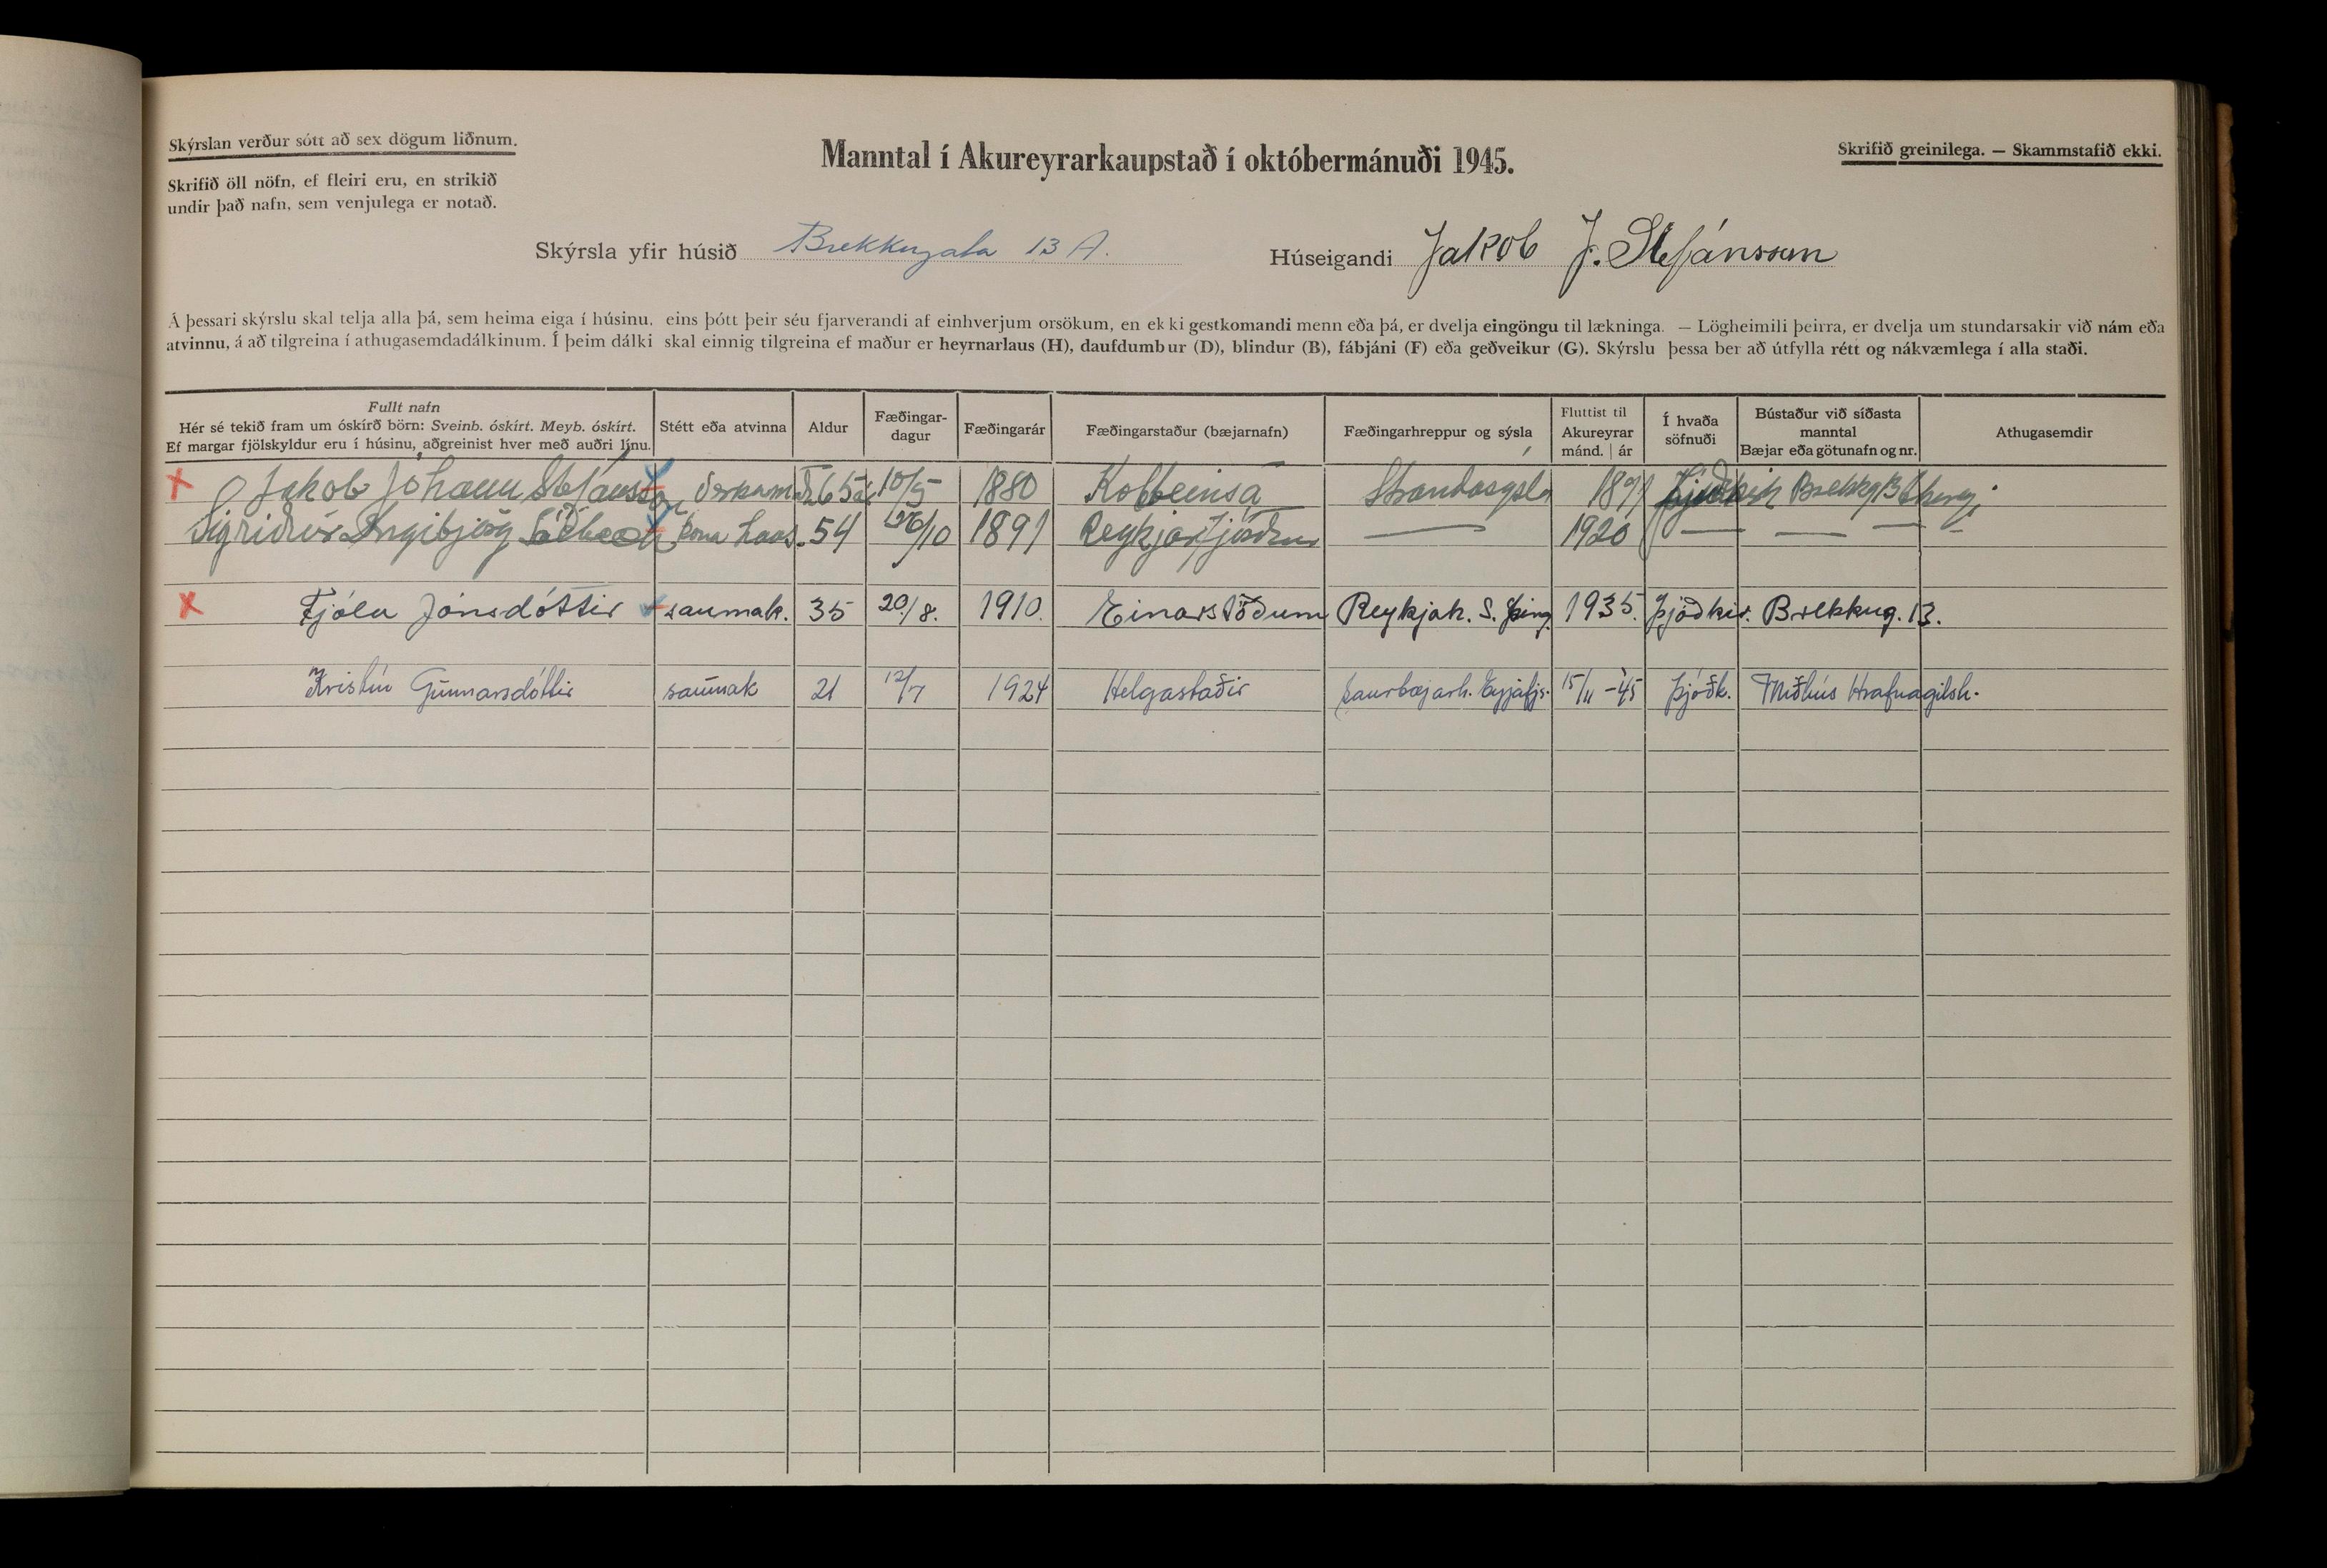 Skýrslan verður sótt að sex dögum liðnum.
Skrifið öll nöfn, ef fleiri eru, en strikið
undir það nafn, sem venjulega er notað.
Manntal í Akureyrarkaupstað í októbermánuði 1945.
Skrifið greinilega. — Skammstafið ekki.
Skýrsla yfir húsið Brekkugata 13 A.
Húseigandi Jakob J. Stefánsson
Á þessari skýrslu skal telja alla þá, sem heima eiga í húsinu, eins þótt þeir séu fjarverandi af einhverjum orsökum, en ekki gestkomandi menn eða þá, er dvelja eingöngu til lækninga. — Lögheimili þeirra, er dvelja um stundarsakir við nám eða
atvinnu, á að tilgreina í athugasemdadálkinum. Í þeim dálki skal einnig tilgreina ef maður er heyrnarlaus (H), daufdumbur (D), blindur (B), fábjáni (F) eða geðveikur (G). Skýrslu þessa ber að útfylla rétt og nákvæmlega í alla staði.
Fullt nafn
Hér sé tekið fram um óskírð börn: Sveinb. óskírt. Meyb. óskírt.
Ef margar fjölskyldur eru í húsinu, aðgreinist hver með auðri línu.
Stétt eða atvinna
Aldur
Fæðingar-
dagur
Fæðingarár
Fæðingarstaður (bæjarnafn)
Fæðingarhreppur og sýsla
Fluttist til
Akureyrar
mánd. | ár
Í hvaða
söfnuði
Bústaður við síðasta
manntal
Bæjar eða götunafn og nr.
Athugasemdir
Jakob Jóhann Stefánsson 65 10/5 1880 Kolbeinsá Strandasysla
Sigríður Ingibjörg kona hans 54 1891 Reykjarfjörður — 1920 — — —
Fjóla Jónsdóttir saumak. 35 20/8. 1910. Einarstöðum Reykjah. S. Þing. 1935. Þjóðkir. Brekkug. 13.
Kristín Gunnarsdóttir saumak 21 12/7 1924 Helgastaðir Saurbæjarh. Eyjafjs. 15/11 -45 Þjóðk. Miðhús Hrafnagilsh.